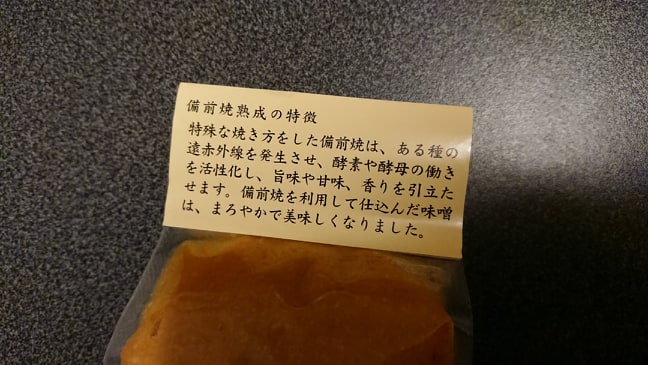 備前焼熟成の特徴
特殊な焼き方をした備前焼は、ある種の
遠赤外線を発生させ、酵素や酵母の働き
を活性化し、旨味や甘味、香りを引立た
せます。備前焼を利用して仕込んだ味噌
は、まろやかで美味しくなりました。